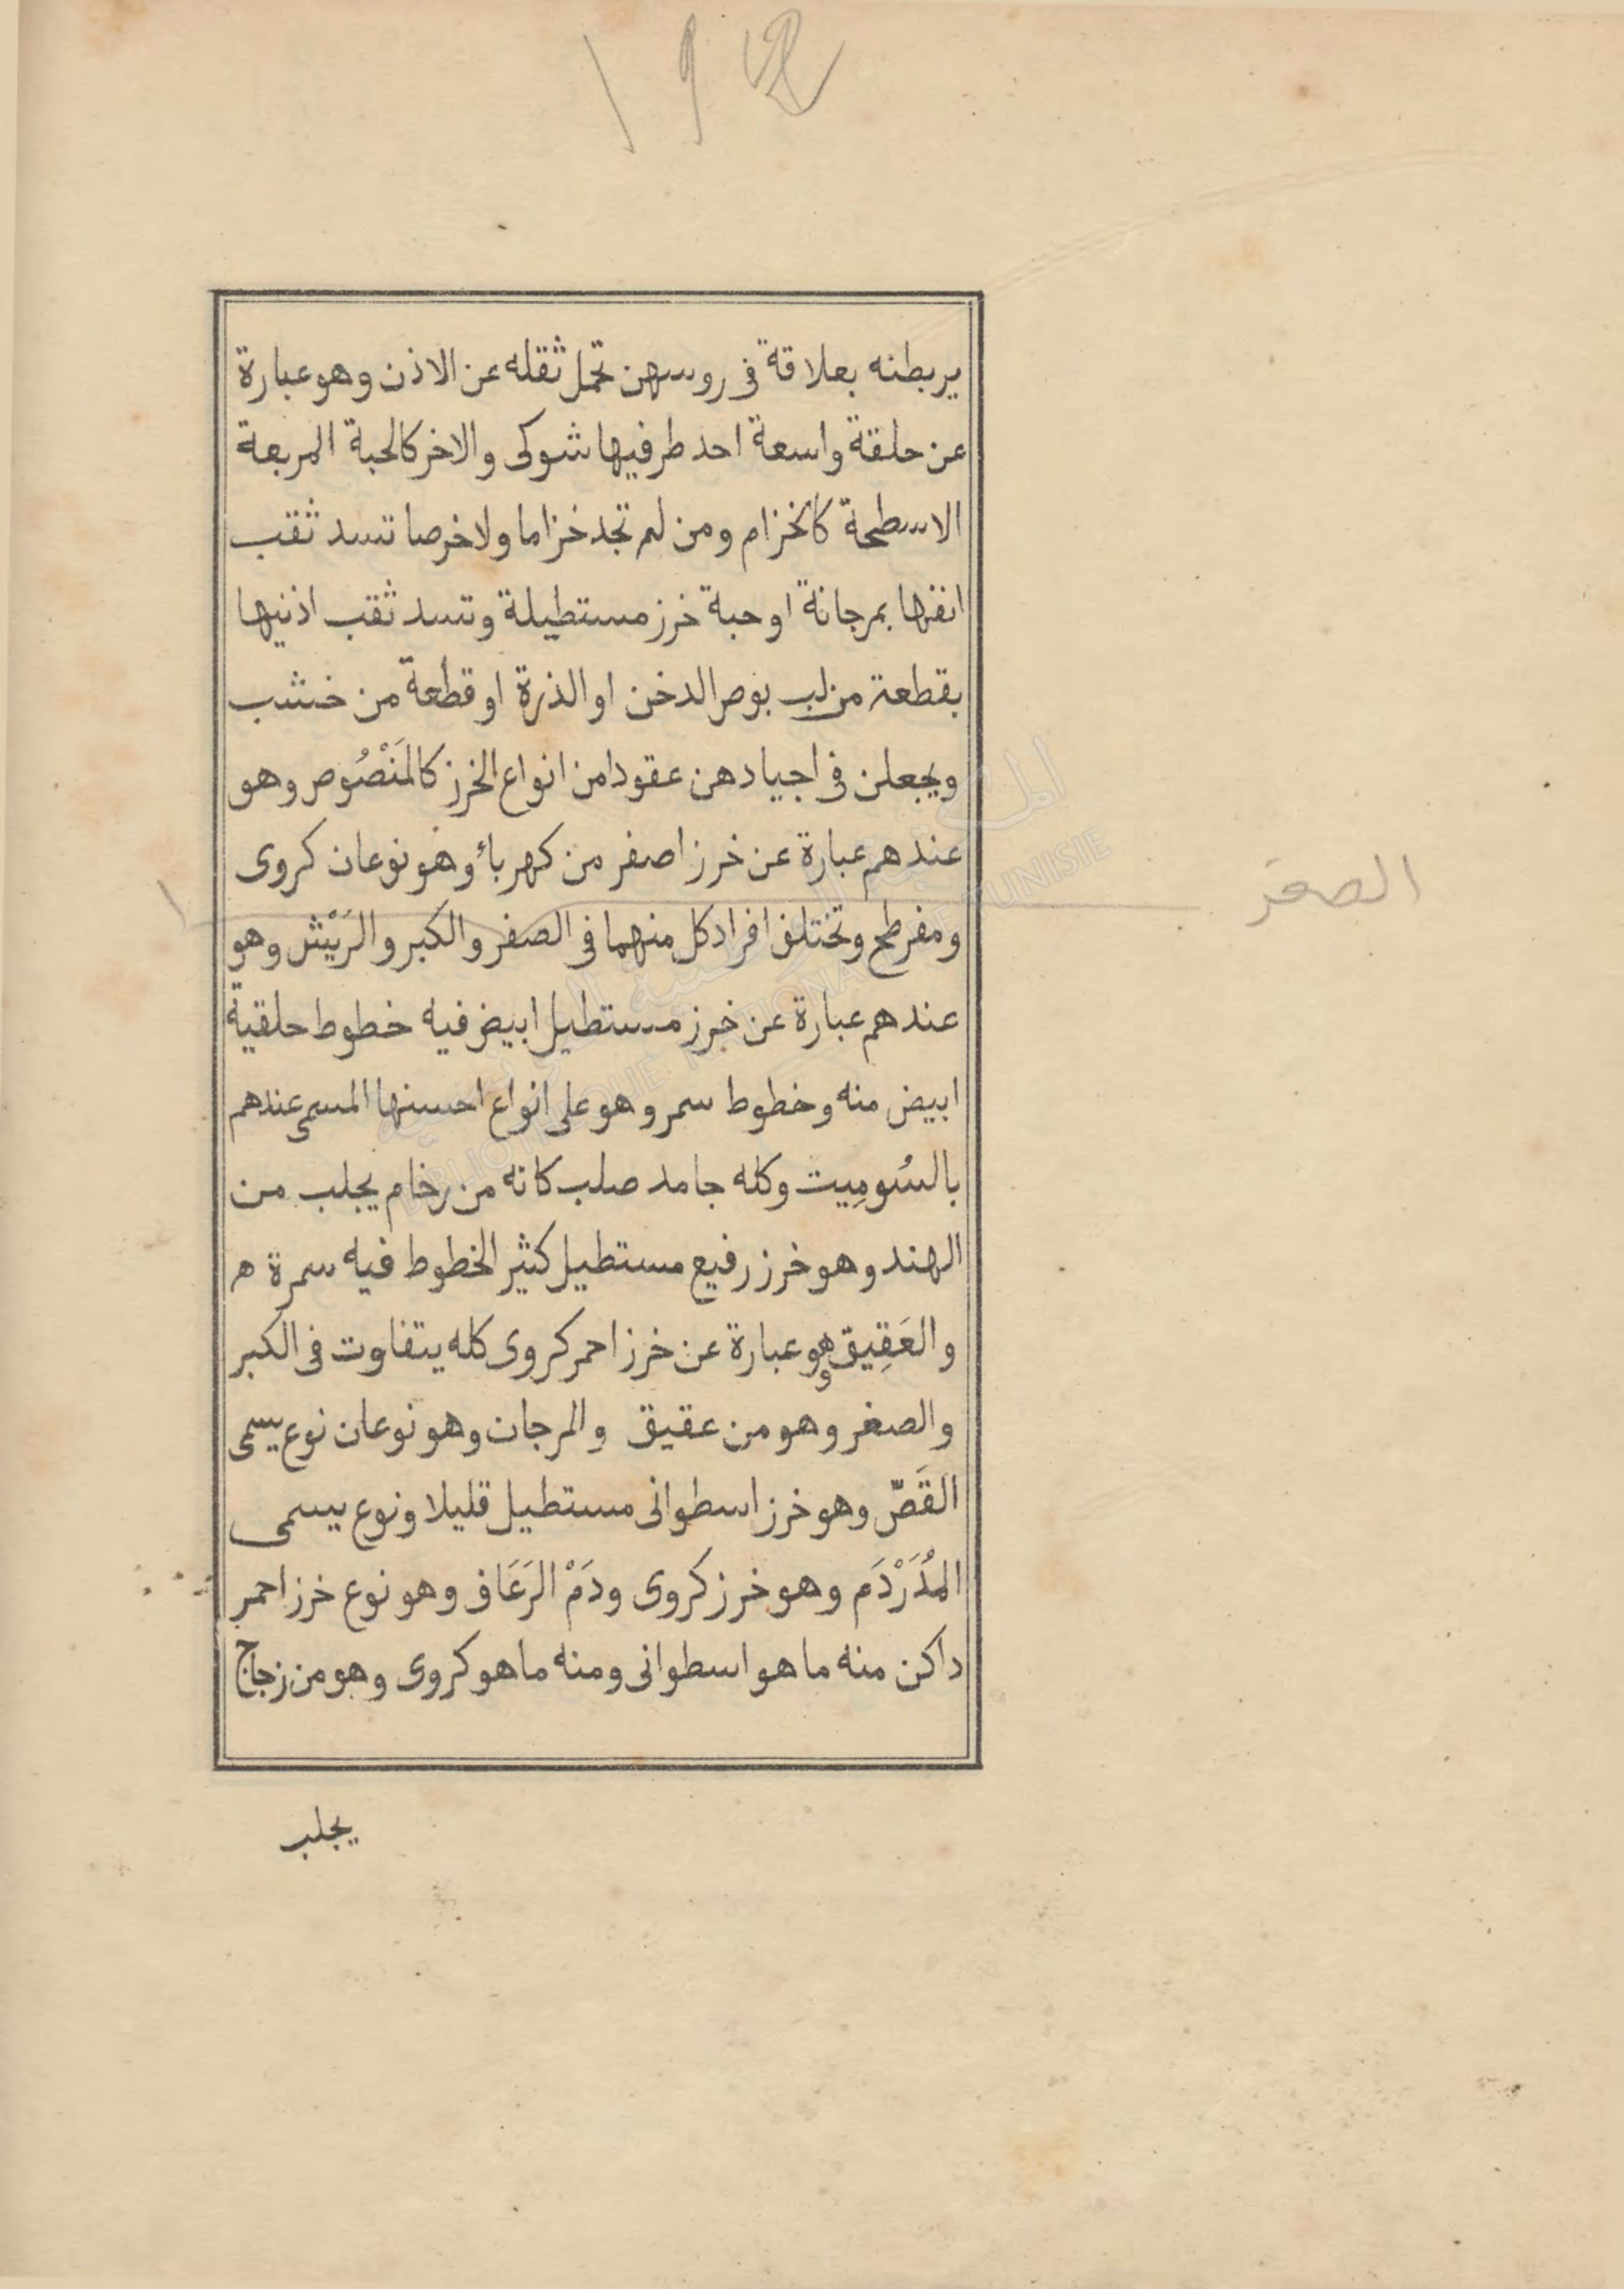 يربطنه بعلاقة في روسهن تحمل ثقله عن الاذن وهو عبارة
عن حلقة واسعة احد طرفيها شوكى والاخر كالحبة المربعة
الاسطحة كالخزام ومن لم تجد خزاما ولا خرصا تسد ثقب
انفها بمرجانة او حبة خرز مستطيلة وتسد ثقب اذنيها
بقطعة من لب بوص الدخن او الذرة او قطعة من خشب
ويجعلن في اجيادهن عقودا من انواع الخرز كالمَنْصُوص وهو
عندهم عبارة عن خرز اصفر من كهرباء وهو نوعان كروى
ومفرطح وتختلف افراد كل منهما في الصفر والكبر والرَيْش وهو
الصغر
عندهم عبارة عن خرز مستطيل ابيض فيه خطوط حلقية
ابيض منه وخطوط سمر وهو على انواع احسنها المسمى عندهم
بالسُومِيت وكله جامد صلب كانه من رخام يجلب من
الهند وهو خرز رفيع مستطيل كثير الخطوط فيه سمرة ه
والعَقِيق وهو عبارة عن خرز احمر كروى كله يتفاوت في الكبر
والصغر وهو من عقيق والمرجان وهو نوعان نوع يسمى
القَصّ وهو خرز اسطوانى مستطيل قليلا ونوع يسمى
المْدَرْدَم وهو خرز كروى ودَمْ الرَعَاف وهو نوع خرز احمر
داكن منه ما هو اسطوانى ومنه ما هو كروى وهو من زجاج
يجلب
المكتبة الوطنية التونسية
BIBLIOTHEQUE NATIONALE DE TUNISIE